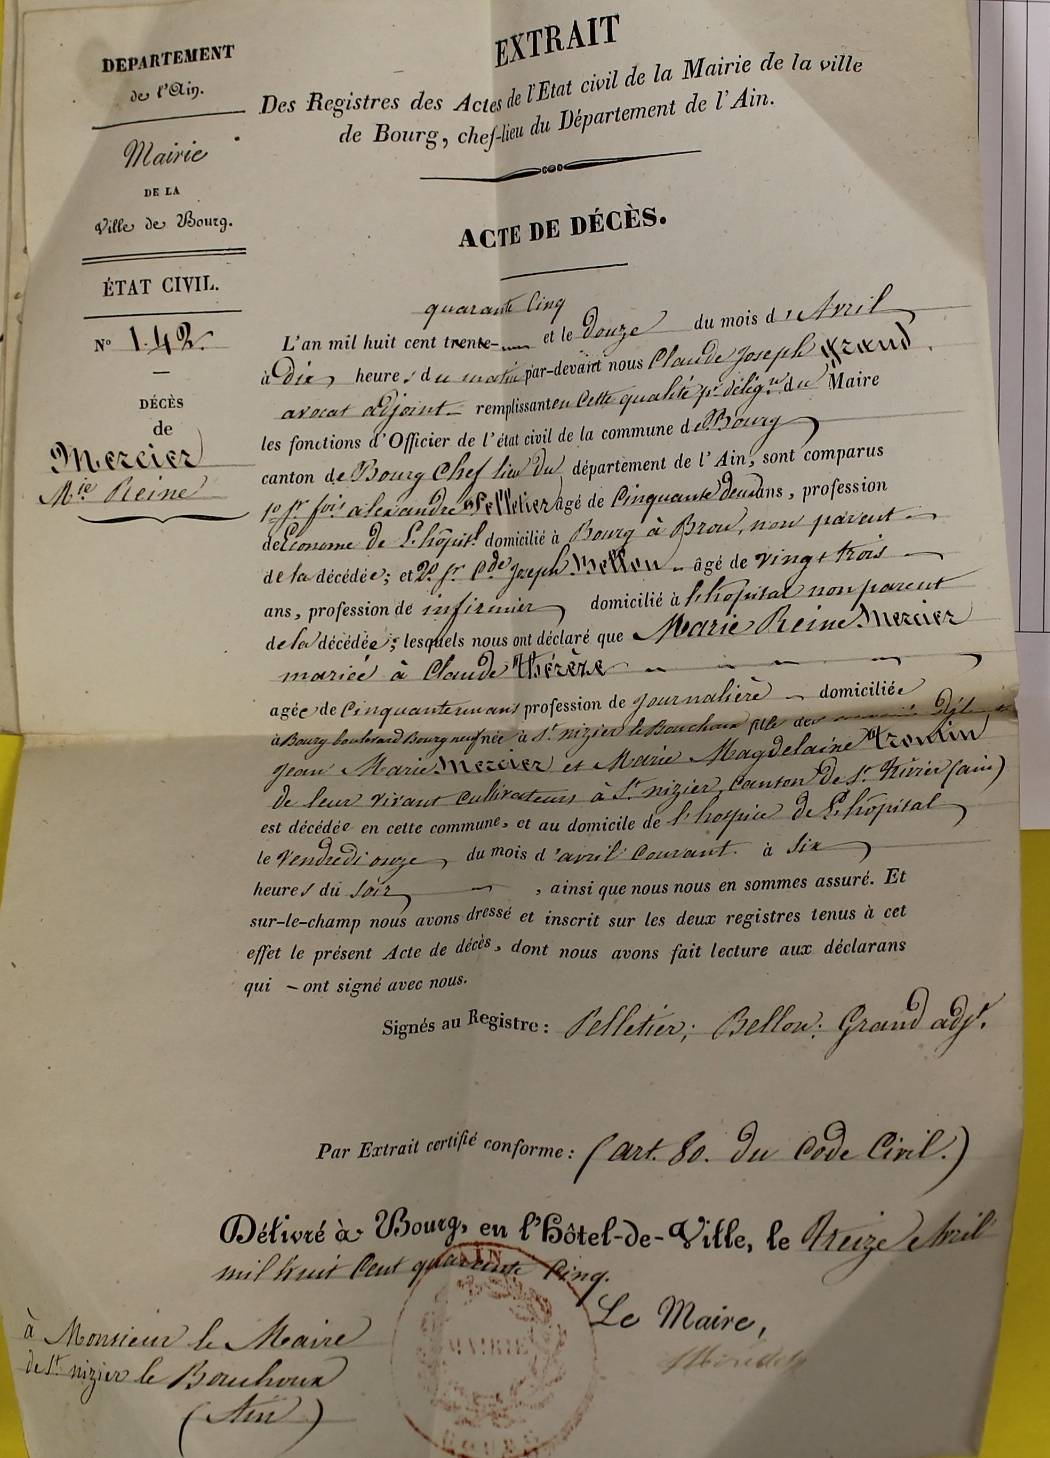 DEPARTEMENT
de l'Ain.
Mairie
DE LA
Ville de Bourg.
ÉTAT CIVIL.
N° 142.
DÉCÈS
de
Mercier
Mie Reine
EXTRAIT
Des Registres des Actes de l'Etat civil de la Mairie de la ville
de Bourg, chef-lieu du Département de l'Ain.
ACTE DE DÉCÈS.
quarante Cinq
L'an mil huit cent trente- et le douze du mois d'Avril
à Dix heures du matin par-devant nous Claude Joseph Grand
avocat adjoint remplissant en Cette qualité pr délégon du Maire
les fonctions d'Officier de l'état civil de la commune de Bourg
canton de Bourg Chef lieu du département de l'Ain, sont comparus
1o Sr alexandre Pelletier âgé de Cinquante deux ans, profession
de Econome de L'hôpital domicilié à Bourg à Brou, non parent
de la décédée; et 2o Sr Cde Joseph Bellou âgé de vingt trois
ans, profession de infirmier domicilié à l'hopital non parent
de la décédée; lesquels nous ont déclaré que Marie Reine Mercier
mariée à Claude Thérèze
agée de Cinquante un ans profession de journalière domiciliée
à Bourg boulevard Bourgneuf née à St nizier le Bouchoux fille de
Jean Marie Mercier et Marie Magdelaine
de leur vivant Cultivateurs à St nizier, Canton de St Trivier (ain)
est décédée en cette commune, et au domicile de l'hospice de L'hôpital
le vendredi onze du mois d'avril Courant à Six
heures du soir, ainsi que nous nous en sommes assuré. Et
sur-le-champ nous avons dressé et inscrit sur les deux registres tenus à cet
effet le présent Acte de décès, dont nous avons fait lecture aux déclarans
qui - ont signé avec nous.
Signés au Registre: Pelletier; Bellou; Grand adjt.
Par Extrait certifié conforme: (art. 80. du Code Civil.)
Délivré à Bourg, en l'Hôtel-de-Ville, le Treize Avril
mil huit Cent quarante Cinq.
AIN
MAIRIE
Le Maire,
à Monsieur le Maire
de St nizier le Bouchoux
(Ain)